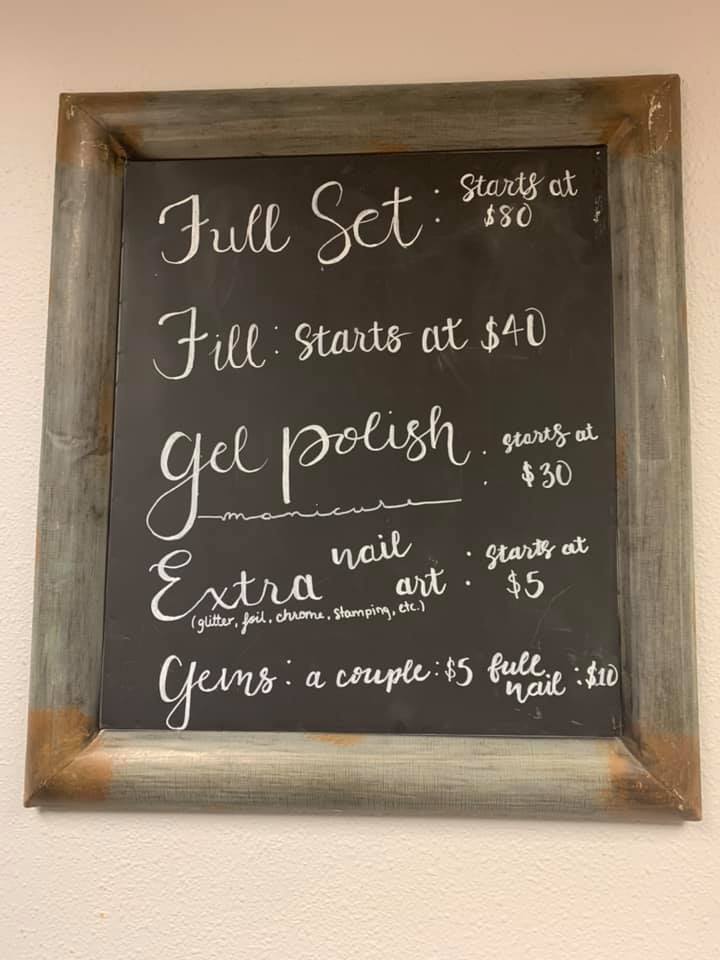 Full Set : Starts at $80
Fill : Starts at $40
Gel polish : starts at $30
manicure
Extra nail art : starts at $5
(glitter, foil, chrome, stamping, etc.)
Gems : a couple : $5 full nail : $10